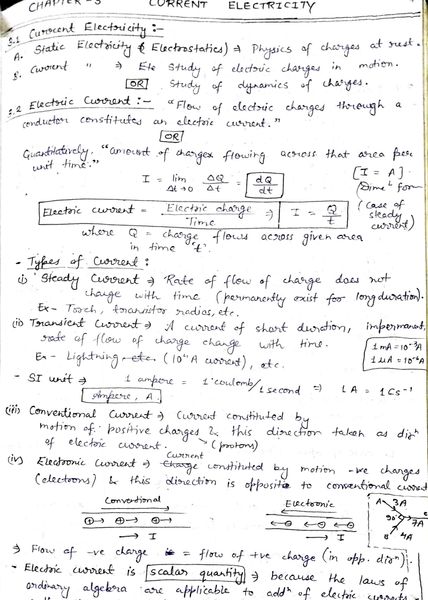 CHAPTER-3 CURRENT ELECTRICITY
3.1 Current Electricity :-
A. Static Electricity (Electrostatics) ⇒ Physics of charges at rest.
B. Current " ⇒ Ele Study of electric charges in motion.
OR Study of dynamics of charges.
3.2 Electric Current :- "Flow of electric charges through a
conductor constitutes an electric current."
OR
Quantitatively, "amount of charges flowing across that area per
unit time."
I = lim Δt→0 ΔQ/Δt = dQ/dt [I = A]
Dime^l for
Electric current = Electric charge / Time ⇒ I = Q/t (case of steady current)
where Q = charge flows across given area
in time 't'.
- Types of Current :
(i) Steady Current ⇒ Rate of flow of charge does not
change with time (permanently exist for long duration).
Ex - Torch, transistor radios, etc.
(ii) Transient Current ⇒ A current of short duration, impermanent,
rate of flow of charge change with time.
Ex - Lightning etc. (10⁴ A current), etc.
1 mA = 10⁻³A
1 μA = 10⁻⁶A
- SI unit ⇒ 1 ampere = 1 coulomb/1 second ⇒ 1A = 1 Cs⁻¹
Ampere, A
(iii) Conventional Current ⇒ Current constituted by
motion of positive charges & this direction taken as dirⁿ
of electric current. (protons)
(iv) Electronic Current ⇒ Charge Current constituted by motion -ve charges
(electrons) & this direction is opposite to conventional current
Conventional Electronic
→ I → I
A 3A
90° C
7A
B 4A
⇒ Flow of -ve charge is = flow of +ve charge (in opp. dirⁿ).
- Electric current is scalar quantity ⇒ because the laws of
ordinary algebra are applicable to addⁿ of electric currents.